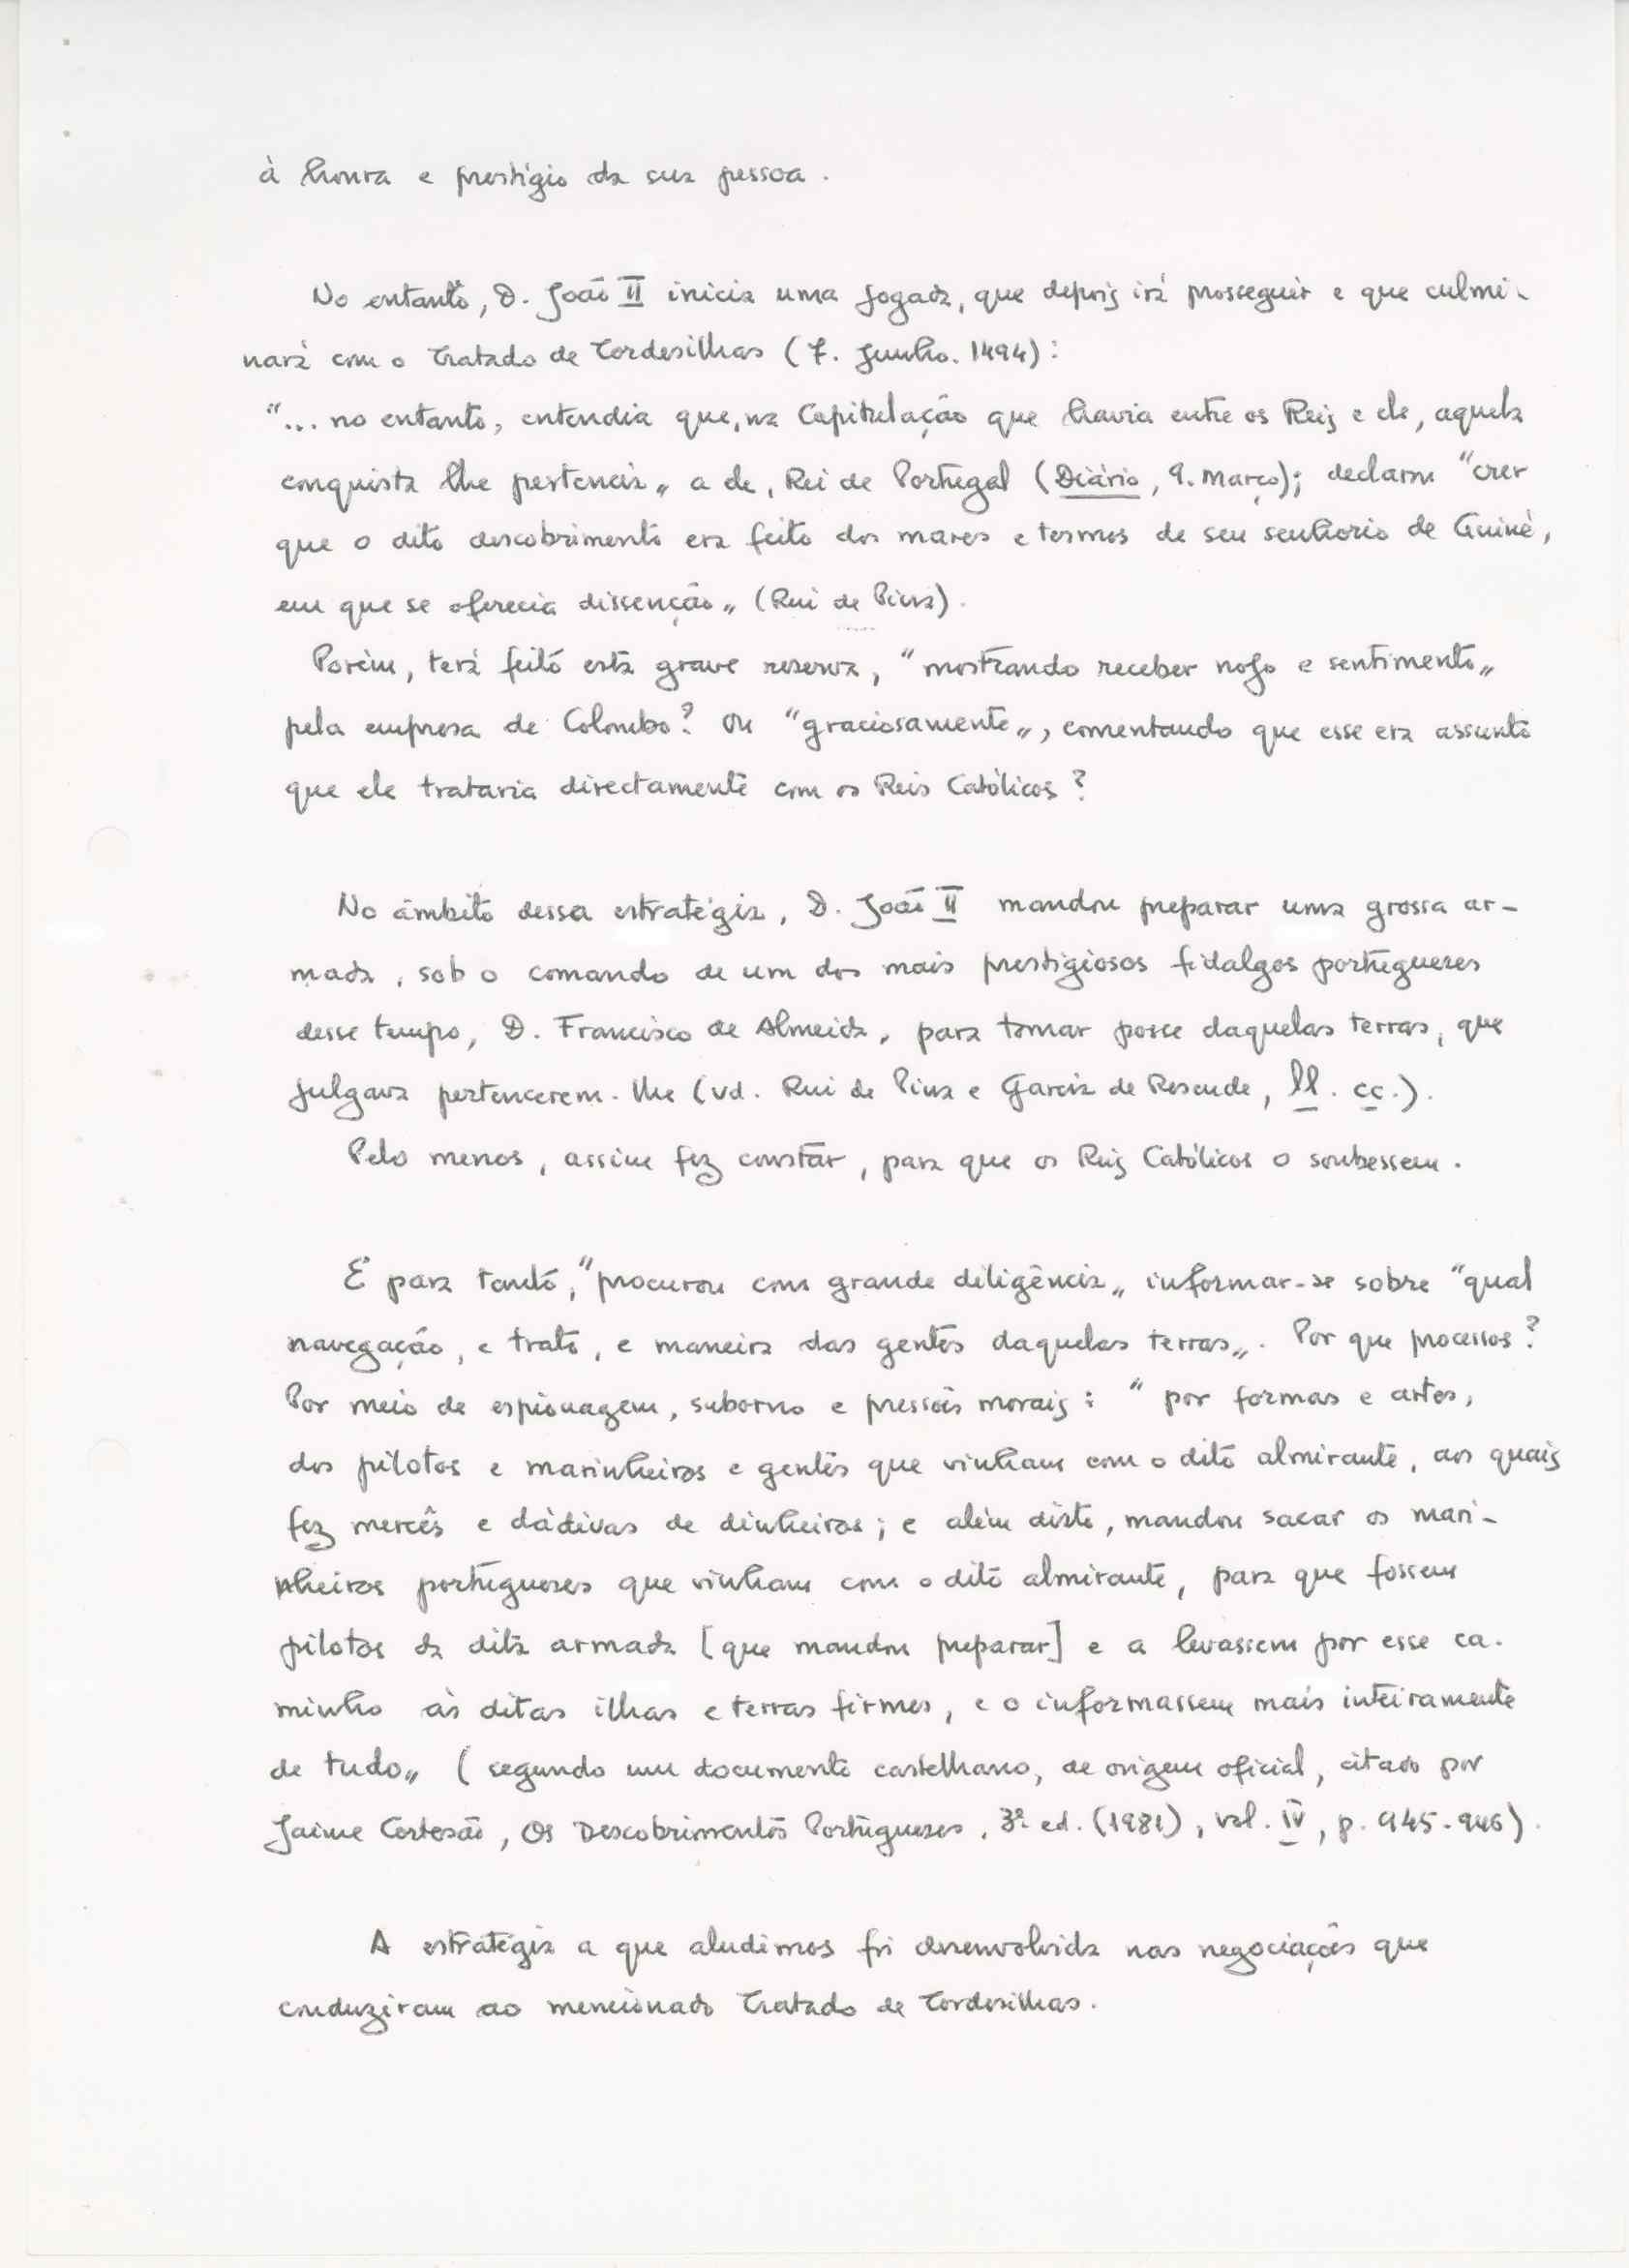 à honra e prestígio da sua pessoa.
No entanto, D. João II inicia uma jogada, que depois irá prosseguir e que culmi-
nará com o Tratado de Tordesilhas (7. Junho. 1494):
"... no entanto, entendia que, na Capitulação que havia entre os Reis e ele, aquela
conquista lhe pertencia„ a ele, Rei de Portugal (Diário, 9. Março); declarou "crer
que o dito descobrimento era feito dos mares e termos de seu senhorio de Guiné,
em que se oferecia dissenção„ (Rui de Pina).
Porém, terá feito esta grave reserva, "mostrando receber nojo e sentimento„
pela empresa de Colombo? Ou "graciosamente„, comentando que esse era assunto
que ele trataria directamente com os Reis Católicos?
No âmbito dessa estratégia, D. João II mandou preparar uma grossa ar-
mada, sob o comando de um dos mais prestigiosos fidalgos portugueses
desse tempo, D. Francisco de Almeida, para tomar posse daquelas terras, que
julgava pertencerem-lhe (vd. Rui de Pina e Garcia de Resende, ll. cc.).
Pelo menos, assim fez constar, para que os Reis Católicos o soubessem.
E para tanto, "procurou com grande diligência„ informar-se sobre "qual
navegação, e trato, e maneira das gentes daquelas terras„. Por que processos?
Por meio de espionagem, suborno e pressões morais: "por formas e artes,
dos pilotos e marinheiros e gentes que vinham com o dito almirante, aos quais
fez mercês e dádivas de dinheiros; e além disto, mandou sacar os mari-
nheiros portugueses que vinham com o dito almirante, para que fossem
pilotos da dita armada [que mandou preparar] e a levassem por esse ca-
minho às ditas ilhas e terras firmes, e o informassem mais inteiramente
de tudo„ (segundo um documento castelhano, de origem oficial, citado por
Jaime Cortesão, Os Descobrimentos Portugueses, 3ª ed. (1981), vol. IV, p. 945-946).
A estratégia a que aludimos foi desenvolvida nas negociações que
conduziram ao mencionado Tratado de Tordesilhas.